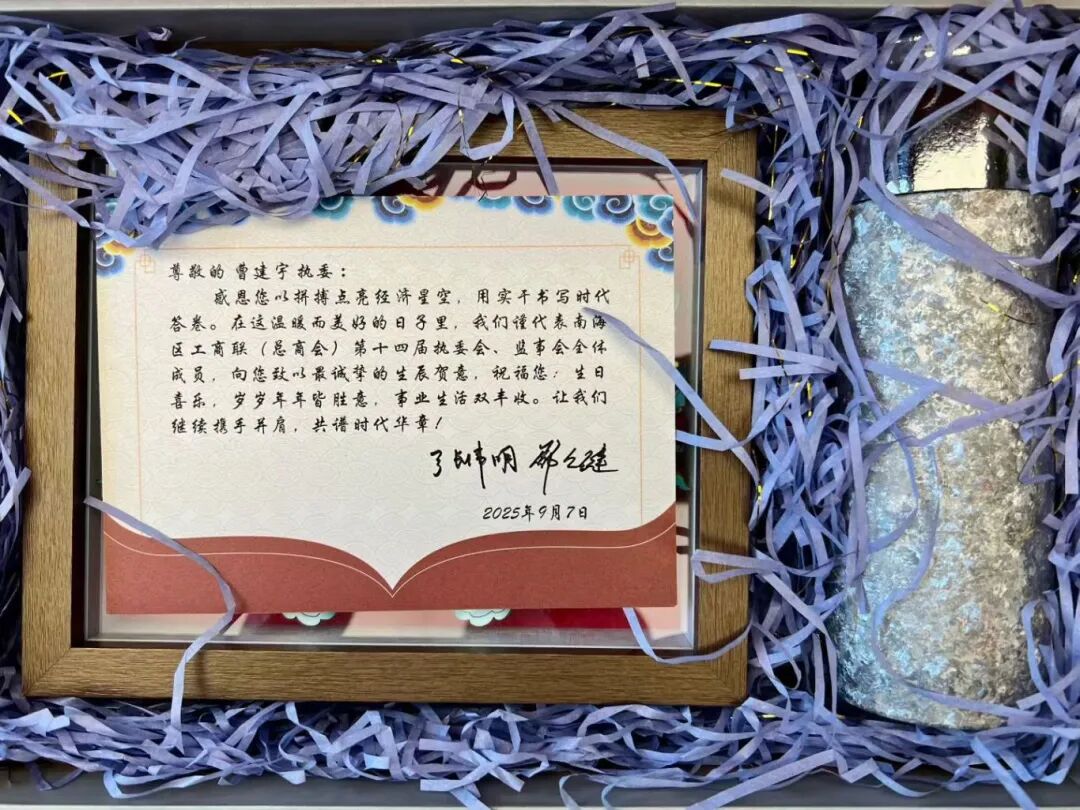 尊敬的 曹建宇 执委：
感恩您以拼搏点亮经济星空，用实干书写时代
答卷。在这温暖而美好的日子里，我们谨代表南海
区工商联（总商会）第十四届执委会、监事会全体
成员，向您致以最诚挚的生辰贺意，祝福您：生日
喜乐，岁岁年年皆胜意，事业生活双丰收。让我们
继续携手并肩，共谱时代华章！
2025年9月7日